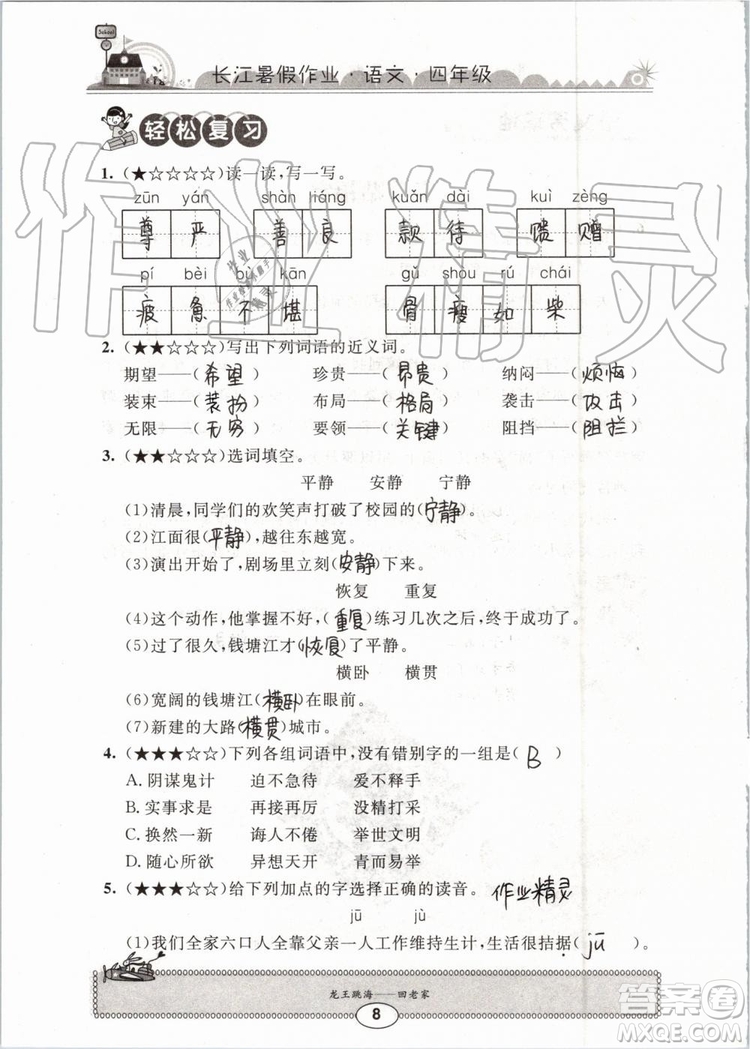 School
长江暑假作业·语文·四年级
轻松复习
1. (★☆☆☆☆)读一读,写一写。
zūn yán shàn liáng kuǎn dài kuì zèng
尊 严 善 良 款 待 馈 赠
pí bèi bù kān gǔ shòu rú chái
疲 惫 不 堪 骨 瘦 如 柴
2. (★★☆☆☆)写出下列词语的近义词。
期望——(希望) 珍贵——(昂贵) 纳闷——(烦恼)
装束——(装扮) 布局——(格局) 袭击——(攻击)
无限——(无穷) 要领——(关键) 阻挡——(阻拦)
3. (★★☆☆☆)选词填空。
平静 安静 宁静
(1)清晨,同学们的欢笑声打破了校园的(宁静)。
(2)江面很(平静),越往东越宽。
(3)演出开始了,剧场里立刻(安静)下来。
恢复 重复
(4)这个动作,他掌握不好,(重复)练习几次之后,终于成功了。
(5)过了很久,钱塘江才(恢复)了平静。
横卧 横贯
(6)宽阔的钱塘江(横卧)在眼前。
(7)新建的大路(横贯)城市。
4. (★★★☆☆)下列各组词语中,没有错别字的一组是( B )
A. 阴谋鬼计 迫不急待 爱不释手
B. 实事求是 再接再厉 没精打采
C. 换然一新 诲人不倦 举世文明
D. 随心所欲 异想天开 青而易举
5. (★★★☆☆)给下列加点的字选择正确的读音。 作业精灵
jū jù
(1)我们全家六口人全靠父亲一人工作维持生计,生活很拮据。( jū )
龙王跳海——回老家
8
作业精灵
答案圈
MXQE.COM